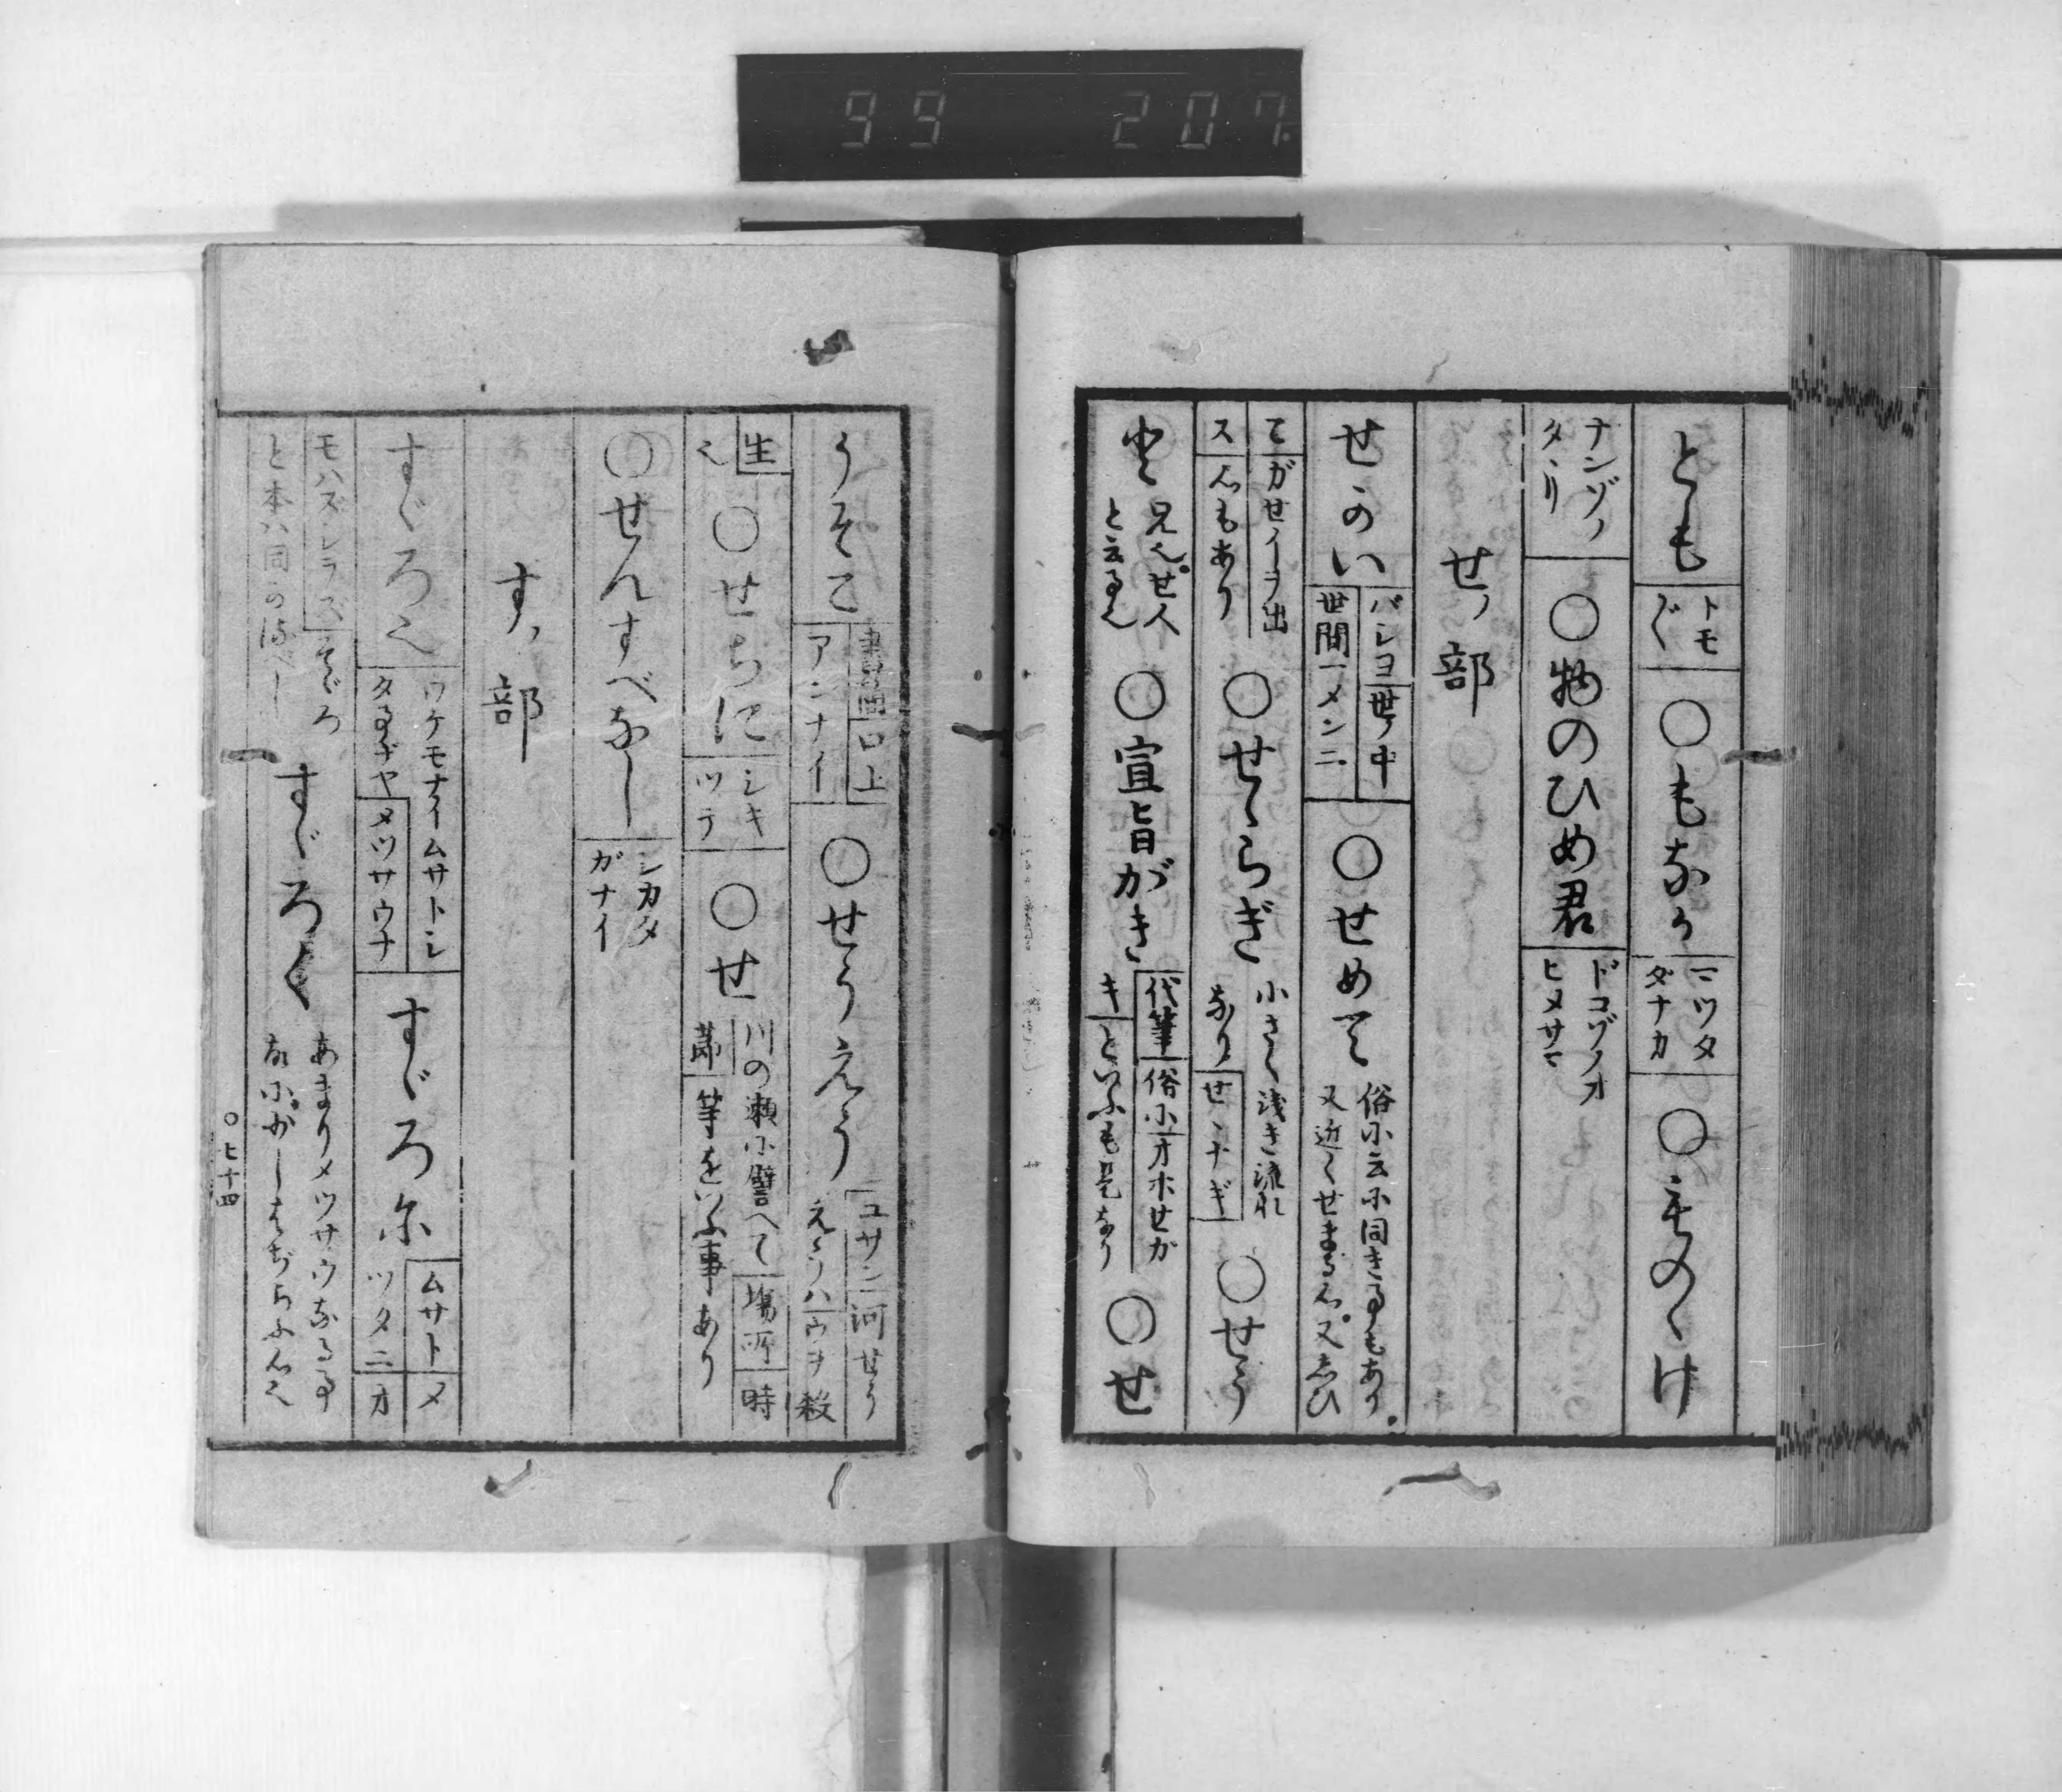 99 207
とも トモ 〲 ○もなか マツタ ダナカ ○ものゝけ
ナンゾノ タヽリ ○物のひめ君 ドコゾノオ ヒメサマ
せノ部
せかい バショ 世ノ中 世間一メンニ ○せめて 俗に云に同き事もあり 又近くせまる也。又しひ
てガセイヲ出 ス也もあり ○せゝらぎ 小さく浅き流れ なり せゝナギ ○せう
と 兄也。せ人 と云る也 ○宣旨がき 代筆 俗にオホセガ キといふも是なり ○せ
うそこ 書面 口上 アンナイ ○せうえう ユサン 河せう えうハウヲ殺
生 也 ○せちに シキ ツテ ○せ 川の瀬に譬へて 場所 時 節 等をいふ事あり
○せんすべなし シカタ ガナイ
すノ部
すゞろ也 ワケモナイ ムサトシ タ事ヂヤ メツサウナ すゞろに ムサト メ ツタニ オ
モハズシラズ そゞろ と本ハ同 すゞろく あまりメツサウなる事
○七十四